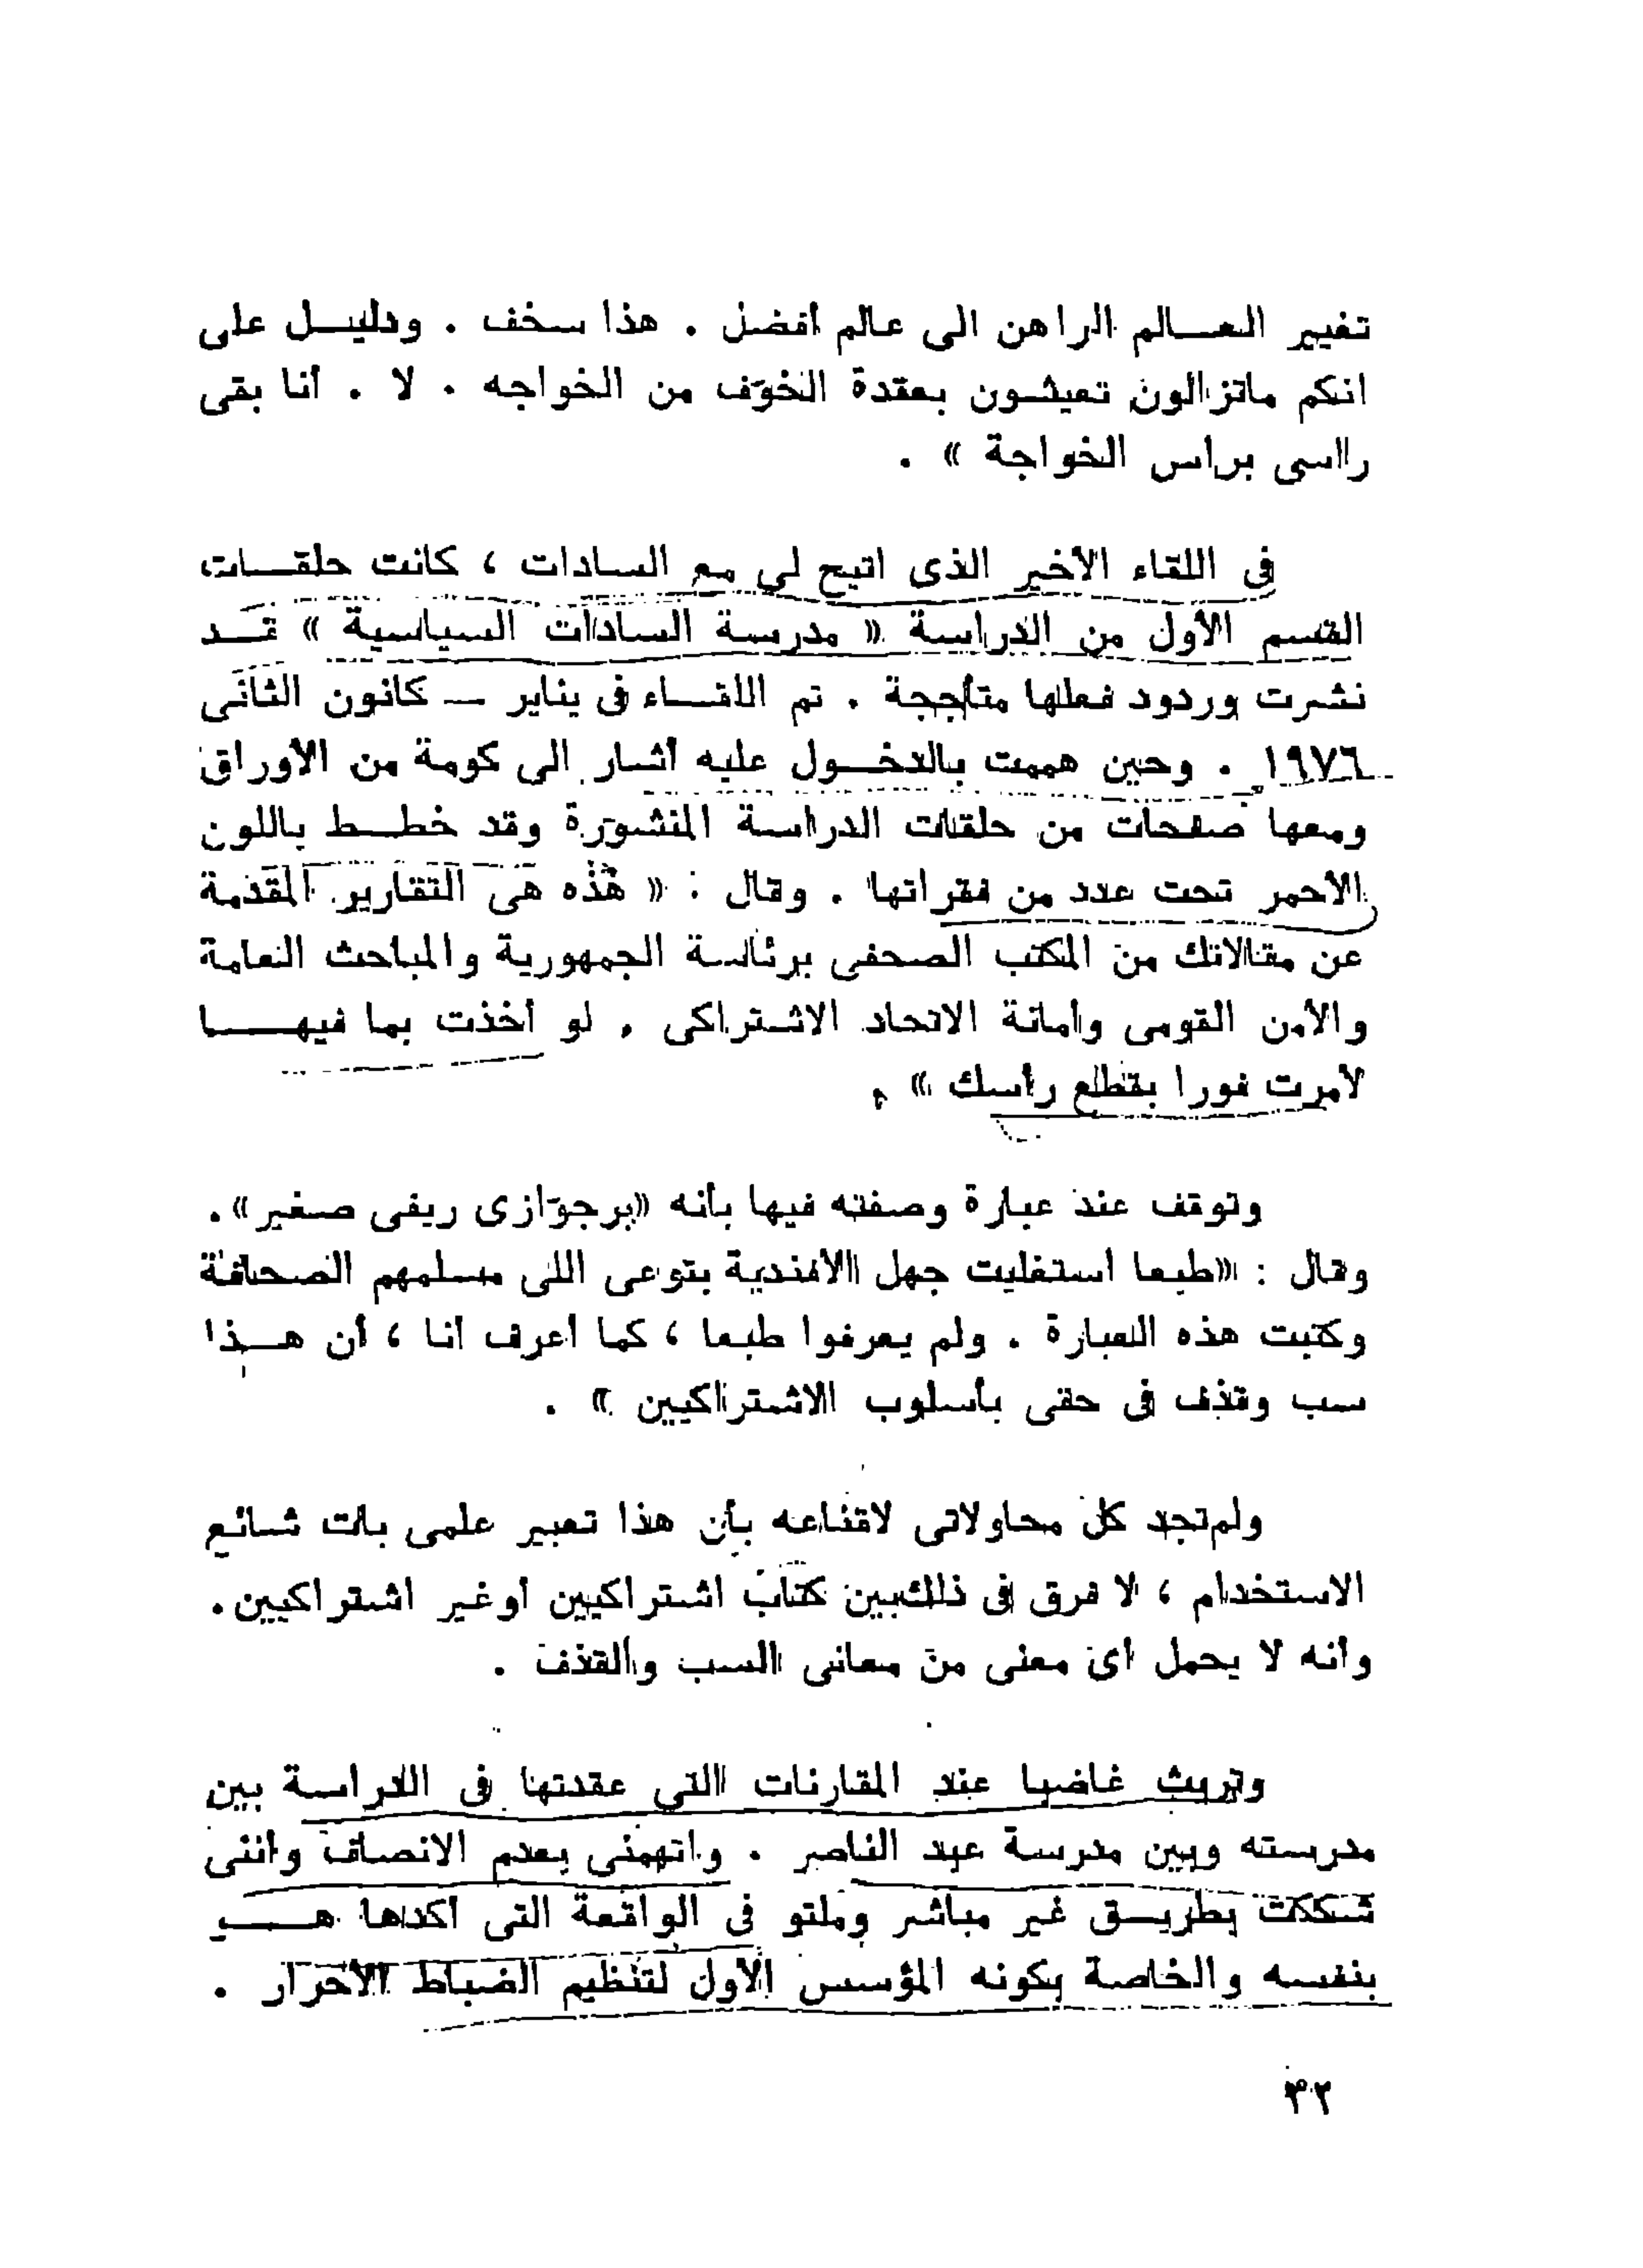 تغيير العــالم الراهن الى عالم أفضل . هذا سخف . ودليــل على
انكم ماتزالون تعيشون بعقدة الخوف من الخواجه . لا . أنا بقى
راسى براس الخواجة » .
فى اللقاء الأخير الذى اتيح لى مع السادات ، كانت حلقــات
القسم الأول من الدراسة « مدرسة السادات السياسية » قــد
نشرت وردود فعلها متأججة . تم اللقــاء فى يناير — كانون الثانى
١٩٧٦ . وحين هممت بالدخــول عليه أشار الى كومة من الأوراق
ومعها صفحات من حلقات الدراسة المنشورة وقد خطــط باللون
الأحمر تحت عدد من فقراتها . وقال : « هذه هى التقارير المقدمة
عن مقالاتك من المكتب الصحفى برئاسة الجمهورية والمباحث العامة
والأمن القومى وأمانة الاتحاد الاشتراكى . لو أخذت بما فيهــــا
لأمرت فورا بقطع رأسك » .
وتوقف عند عبارة وصفته فيها بأنه «برجوازى ريفى صغير» .
وقال : «طبعا استغليت جهل الأفندية بتوعى اللى مسلمهم الصحافة
وكتبت هذه العبارة . ولم يعرفوا طبعا ، كما أعرف أنا ، أن هــذا
سب وقذف فى حقى بأسلوب الاشتراكيين » .
ولم تجد كل محاولاتى لاقناعه بأن هذا تعبير علمى بات شائع
الاستخدام ، لا فرق فى ذلك بين كتاب اشتراكيين أو غير اشتراكيين .
وأنه لا يحمل أى معنى من معانى السب والقذف .
وتريث غاضبا عند المقارنات التى عقدتها فى الدراسة بين
مدرسته وبين مدرسة عبد الناصر . واتهمنى بعدم الانصاف وأننى
شككت بطريــق غير مباشر وملتو فى الواقعة التى أكدها هــــو
بنفسه والخاصة بكونه المؤسس الأول لتنظيم الضباط الأحرار .
٣٢